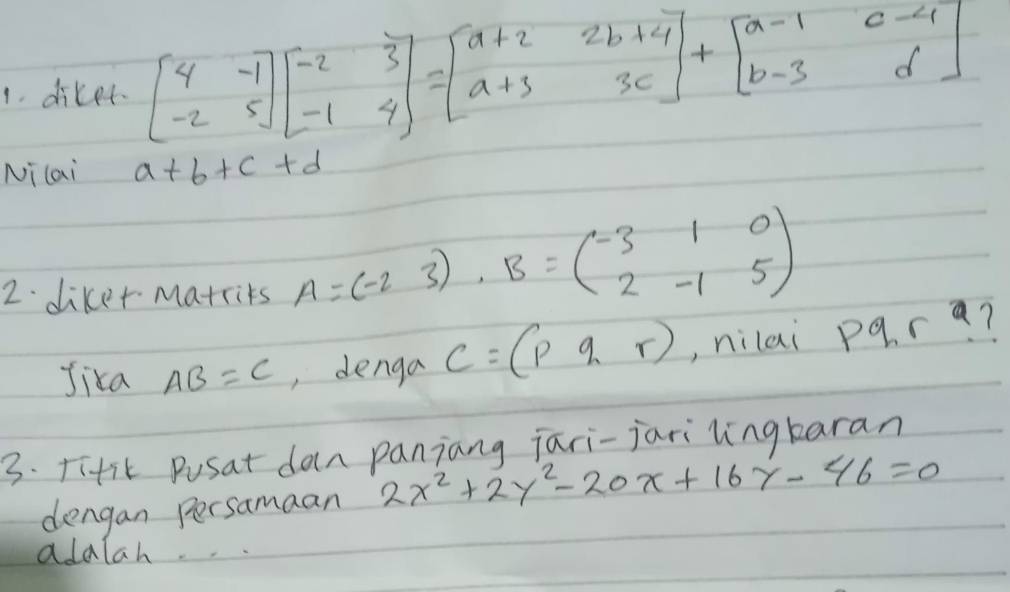 1. diket. [4 -1 -2 5] [-2 3 -1 4] = [a+2 2b+4 a+3 3c] + [a-1 c-4 b-3 d]
Nilai a+b+c+d
2. diket Matriks A = (-2 3). B = (-3 1 0 2 -1 5)
Jika AB = C, denga C = (p q r), nilai pq,r a??
3. Titik Pusat dan panjang jari-jari lingkaran
dengan Persamaan 2x²+2y²-20x+16y-46=0
adalah ...